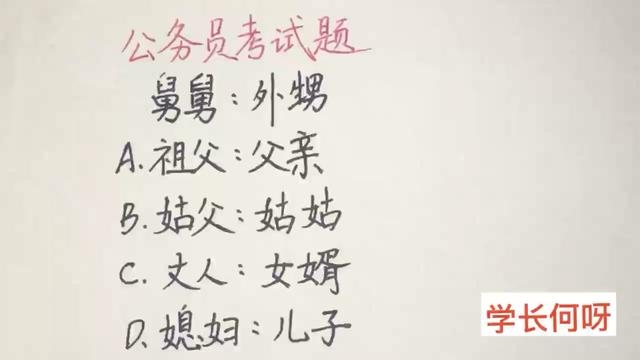 公务员考试题
舅舅:外甥
A.祖父:父亲
B.姑父:姑姑
C.丈人:女婿
D.媳妇:儿子
学长何呀